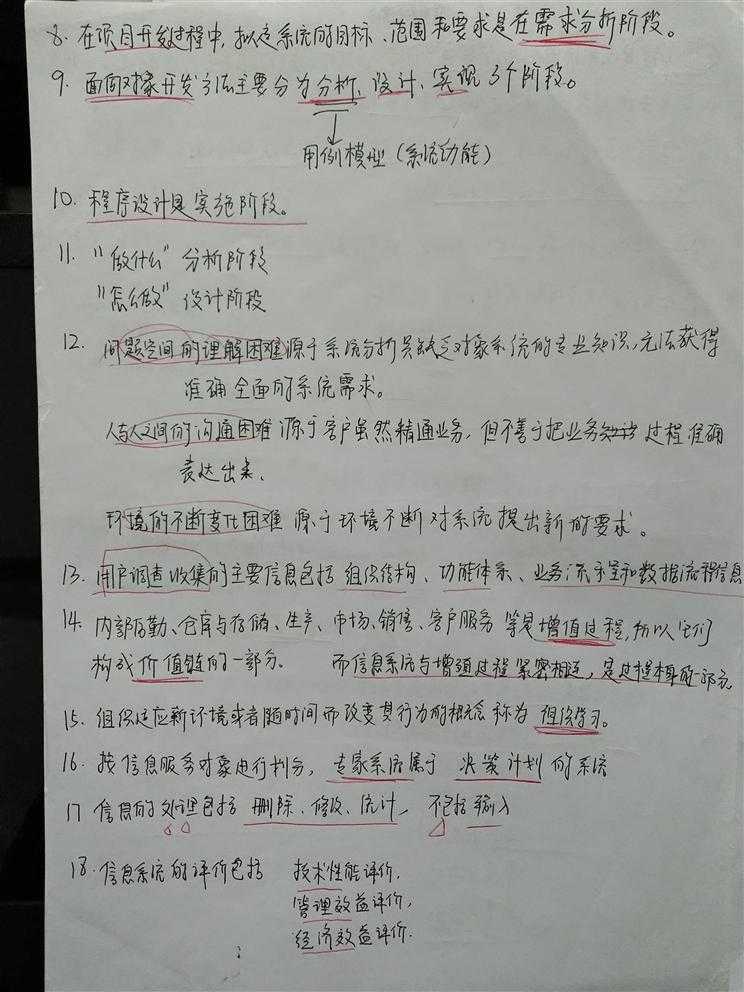 8. 在项目开发过程中,拟定系统的目标、范围和要求是在需求分析阶段。
9. 面向对象开发方法主要分为分析、设计、实现3个阶段。
用例模型(系统功能)
10. 程序设计是实施阶段。
11. "做什么" 分析阶段
"怎么做" 设计阶段
12. 问题空间的理解困难源于系统分析员缺乏对象系统的专业知识,无法获得
准确全面的系统需求。
人与人之间的沟通困难源于客户虽然精通业务,但不善于把业务过程准确
表达出来.
环境的不断变化困难源于环境不断对系统提出新的要求。
13. 用户调查收集的主要信息包括 组织结构、功能体系、业务流程和数据流程信息
14. 内部后勤、仓库与存储、生产、市场、销售、客户服务 等是增值过程,所以它们
构成价值链的一部分。 而信息系统与增值过程紧密相连,是过程本身的一部分
15. 组织适应新环境或者随时间而改变其行为的概念称为 组织学习。
16. 按信息服务对象进行划分,专家系统属于 决策计划的系统
17 信息的处理包括 删除、修改、统计,不包括输入
18. 信息系统的评价包括 技术性能评价,
管理效益评价,
经济效益评价.